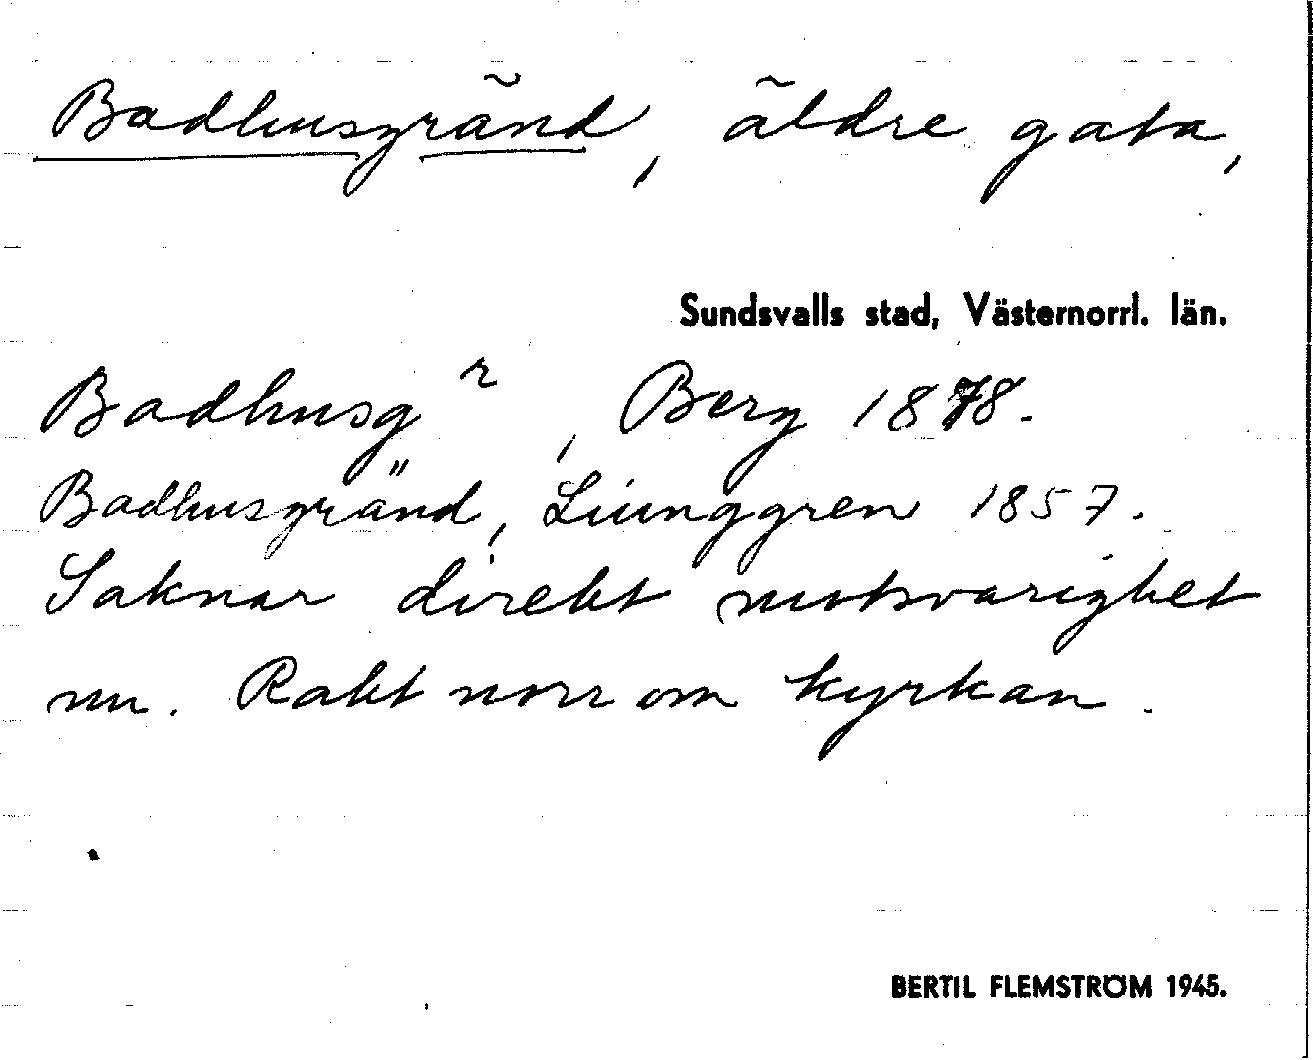 Badhusgränd, äldre gata,
Sundsvalls stad, Västernorrl. län.
Badhusgr, Berg 1878.
Badhusgränd, Ljunggren 1857.
Saknar direkt motsvarighet
nu. Rakt norr om kyrkan.
BERTIL FLEMSTRÖM 1945.